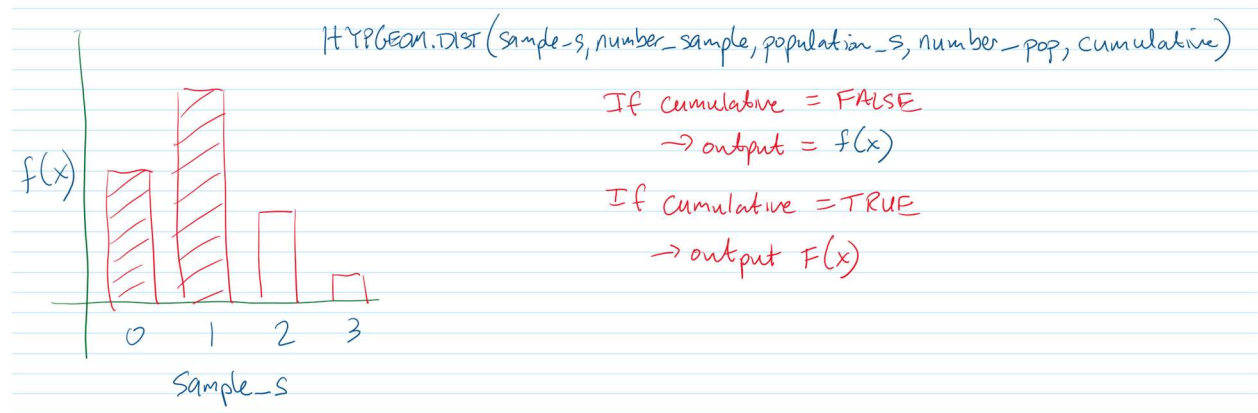 HYPGEOM.DIST(sample_s, number_sample, population_s, number_pop, cumulative)
If cumulative = FALSE
→ output = f(x)
If cumulative = TRUE
→ output F(x)
f(x)
0 1 2 3
sample_s